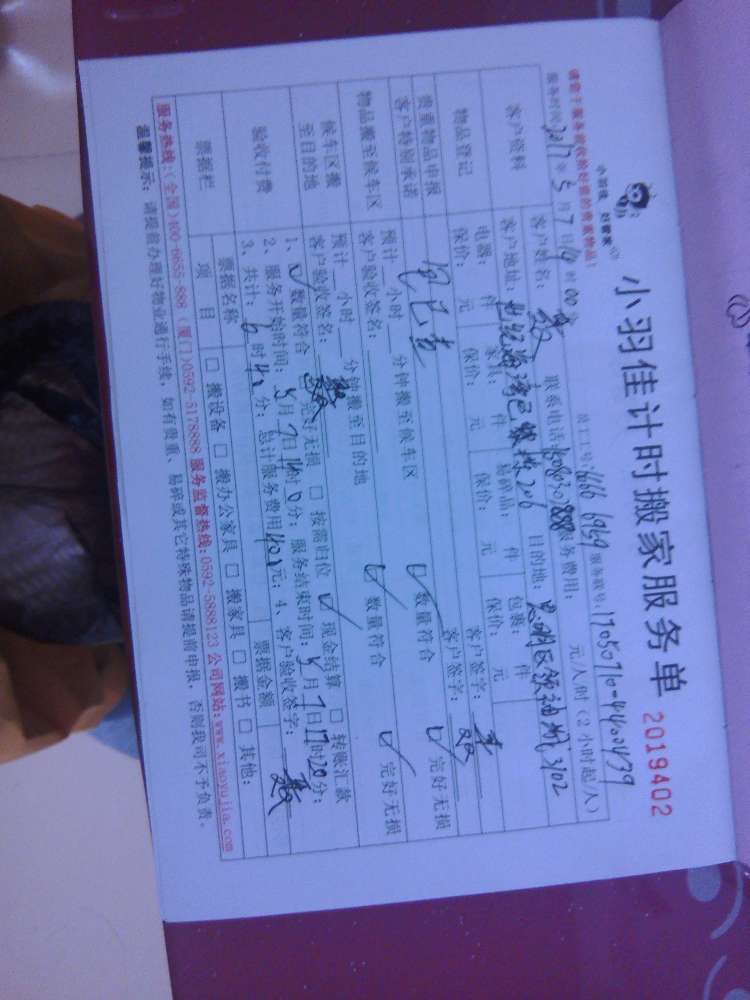 小羽佳 好管家
小羽佳计时搬家服务单 2019402
请您于服务前收拾好您的贵重物品!
员工工号: 服务联号:
服务时间: 2017年5月7日14时00分 元/人/时(2小时起/人)
客户资料 客户姓名: 联系电话: 服务费用:
客户地址: 目的地:
物品登记 电器: 件 家具: 件 易碎品: 件 包裹: 件
保价: 元 保价: 元 保价: 元 保价: 元
贵重物品申报 客户签字:
客户特别承诺 客户签字:
物品搬至候车区 预计 小时 分钟搬至候车区 ☑ 数量符合 ☑ 完好无损
客户验收签名:
候车区搬至目的地 预计 小时 分钟搬至目的地 ☑ 数量符合 ☑ 完好无损
客户验收签名:
验收付费 1、☑ 数量符合 完好无损 □ 按需归位 ☑ 现金结算 □ 转账汇款
2、服务开始时间:5月7日14时0分;服务结束时间:5月7日17时20分;
3、共计:6时40分;总计服务费用400元;4、客户验收签字:
票据栏 票据名称 票据金额
项目 □ 搬设备 □ 搬办公家具 □ 搬家具 □ 搬书 □ 其他:
服务热线:(全国)400-6655-888 (厦门)0592-5178888 服务监督热线:0592-5888123 公司网站:www.xiaoyujia.com
温馨提示:请提前办理好物业通行手续,如有贵重、易碎或其它特殊物品请提前申报,否则我司不予负责。